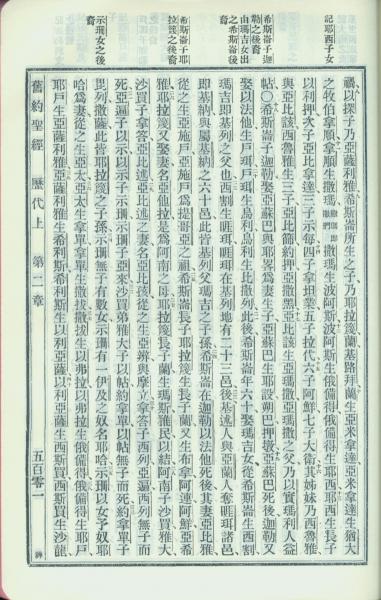 記耶西子女
希斯崙子迦
勒之後裔
由瑪吉女出
之希斯崙後
裔
希斯崙子耶
拉篾之後裔
示珊女之後
裔
禍以探子乃亞薩利雅希斯崙所生之子乃耶拉篾蘭基路拜蘭生亞米拿達亞米拿達生猶大
之牧伯拿順拿順生撒瑪撒瑪即撒們撒瑪生波阿斯波阿斯生俄備得俄備得生耶西耶西生長子
以利押次子亞比拿達三子示每四子拿坦業五子拉代六子阿鮮七子大衛其姊妹乃西魯雅
與亞比該西魯雅生三子亞比篩約押亞撒黑亞比該生亞瑪撒亞瑪撒之父乃以實瑪利人益
帖〇希斯崙子迦勒娶亞蘇巴與耶畧爲妻生子亞蘇巴生耶設朔巴押墩亞蘇巴死後迦勒又
娶以法他生戶珥戶珥生烏利烏利生比撒列此後希斯崙年六十娶瑪吉女從希斯崙生西割
瑪吉即基列之父也西割生睚珥睚珥在基列地有二十三邑後基述人與亞蘭人奪睚珥諸邑
即基納與屬基納之六十邑此皆基列父瑪吉之子孫希斯崙在迦勒以法他死後其妻亞比雅
從之生亞施戶亞施戶爲提哥亞之祖希斯崙長子耶拉篾生長子蘭又生布拿阿連阿鮮亞希
雅耶拉篾又娶妻名亞他拉是爲阿南之母耶拉篾長子蘭生瑪斯雅民以結阿南子沙買雅大
沙買子拿答亞比述亞比述之妻名亞比孩從之生亞辨與摩立拿答子西列亞遍西列無子而
死亞遍子以示以示子示珊示珊子亞來沙買弟雅大子以帖約拿單以帖無子而死約拿單子
毘列撒薩此皆耶拉篾之子孫示珊無子有數女示珊有一伊及之奴名耶哈示珊以女予奴耶
哈爲妻從之生亞太亞太生拿單拿單生撒拔撒拔生以弗拉以弗拉生俄備得俄備得生耶戶
耶戶生亞薩利雅亞薩利雅生希利斯希利斯生以利亞薩以利亞薩生西斯買西斯買生沙龍
舊約聖經 歷代上 第二章 五百零一